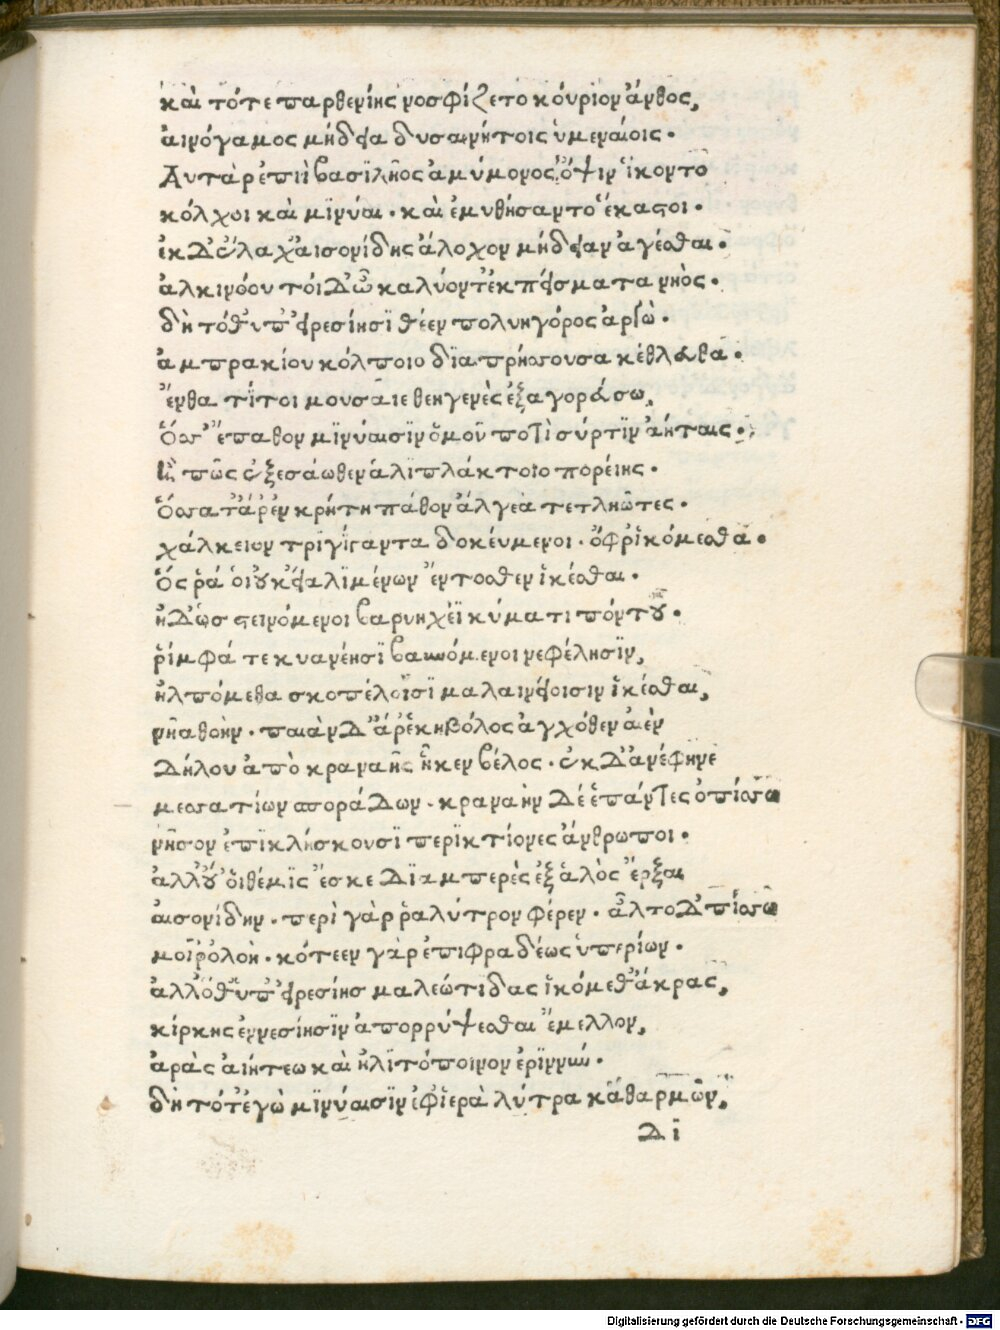 καὶ τότε παρθενίης νοσφίζετο κούριον ἄνθος,
αἰνόγαμος μήδεια δυσαινήτοις ὑμεναίοις.
Αὐτὰρ ἐπεὶ βασιλῆος ἀμύμονος, ὄψιν ἵκοντο
κόλχοι καὶ μϊνύαι. καὶ ἐμυθήσαντο ἕκαστοι.
ἐκ δ' ἕλαχ' αἰσονίδης ἄλοχον μήδειαν ἀγέσθαι.
ἀλκινόου τοὶ δ' ὦκα λύοντ' ἐκ πείσματα νηὸς.
δὴ τόθ' ὑπ' εἰρεσίησϊ θέεν πολυηγόρος ἀργὼ.
ἀμπρακίου κόλποιο δϊαπρήσσουσα κέλευθα.
ἔνθα τί τοι μουσαῖε θεηγενὲς ἐξαγορεύσω,
ὅσσ' ἔπαθον μϊνύαισϊν ὁμοῦ ποτὶ σύρτϊν ἀήταις.
ἢ πῶς ἐξεσάωθεν ἁλϊπλάκτοιο πορείης.
ὅσσα τ' ἄρ' ἐν κρήτη πάθον ἄλγεα τετληῶτες.
χάλκειον τρϊγίγαντα δοκεύμενοι. ὄφρ' ἱκόμεσθα.
ὅς ῥά οἱ οὐκ εἴα λϊμένων ἔντοσθεν ἱκέσθαι.
ἠδ' ὡς τειρόμενοι βαρυηχέϊ κύματι πόντου.
ῥίμφά τε κυανέησϊ βαιόμενοι νεφέλησϊν,
ἠλπόμεθα σκοπέλοισϊ μαλαινείοισιν ἱκέσθαι,
νῆα θοὴν. παιὰν δ' ἄρ' ἑκηβόλος ἀγχόθεν αἰὲν
Δήλου ἀπὸ κραναῆς ἧκεν βέλος. ἐκ δ' ἀνέφηνε
μεσσατίων σποράδων. κραναὴν δέ ἑ πάντες ὀπίσσω
νῆσον ἐπϊκλήσκουσϊ περϊκτίονες ἄνθρωποι.
ἀλλ' οὔ οἱ θέμϊς ἔσκε δϊαμπερὲς ἐξ ἁλὸς ἔρξαι
αἰσονίδην. περὶ γὰρ ῥα λύτρον φέρεν. ἆλτο δ' ὀπίσσω
μοῖρ' ὀλοὴ. κότεεν γὰρ ἐπιφραδέως ὑπερίων.
ἀλλ' ὅθ' ὑπ' εἰρεσίησ μαλεώτιδας ἱκόμεθ' ἄκρας,
κίρκης ἐννεσίησϊν ἀπορρύψεσθαι ἔμελλον,
ἀρὰς αἰήτεω καὶ ἠλϊτόποινον ἐρϊννύν.
δὴ τότ' ἐγὼ μϊνύαισϊν ἐφ' ἱερὰ λύτρα καθαρμῶν,
Δϊ
Digitalisierung gefördert durch die Deutsche Forschungsgemeinschaft - DFG